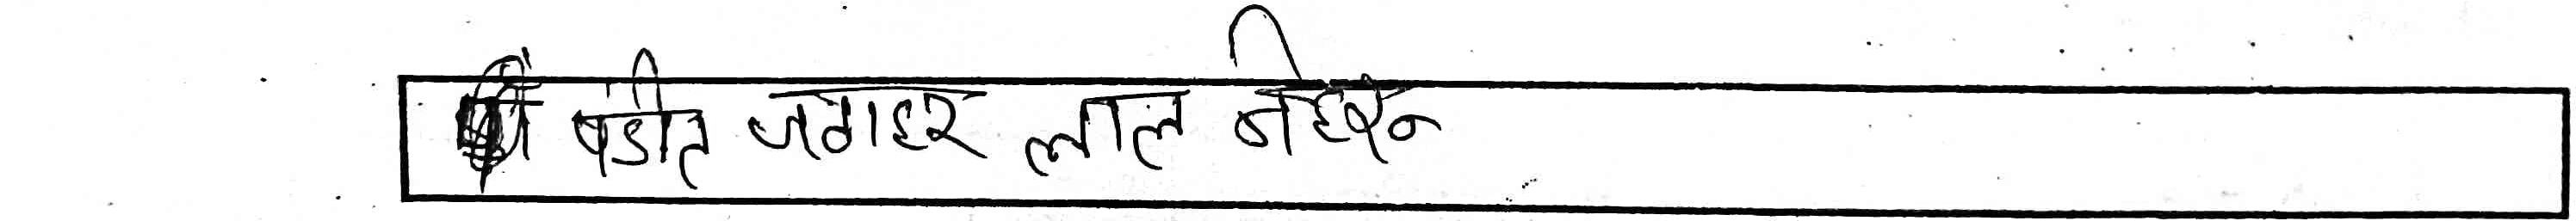 पंडीत जवाहर लाल नेहरू